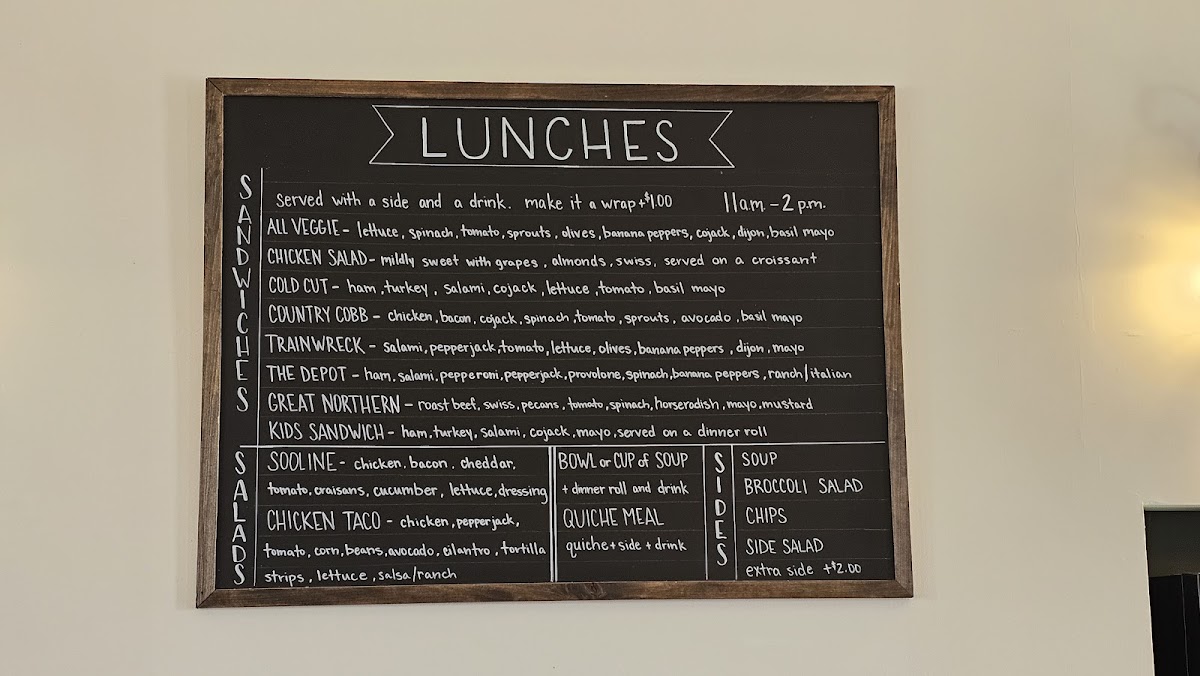 LUNCHES
SANDWICHES
served with a side and a drink. make it a wrap +$1.00 11a.m. - 2 p.m.
ALL VEGGIE - lettuce, spinach, tomato, sprouts, olives, banana peppers, cojack, dijon, basil mayo
CHICKEN SALAD - mildly sweet with grapes, almonds, swiss, served on a croissant
COLD CUT - ham, turkey, salami, cojack, lettuce, tomato, basil mayo
COUNTRY COBB - chicken, bacon, cojack, spinach, tomato, sprouts, avocado, basil mayo
TRAINWRECK - salami, pepperjack, tomato, lettuce, olives, banana peppers, dijon, mayo
THE DEPOT - ham, salami, pepperoni, pepperjack, provolone, spinach, banana peppers, ranch/italian
GREAT NORTHERN - roast beef, swiss, pecans, tomato, spinach, horseradish, mayo, mustard
KIDS SANDWICH - ham, turkey, salami, cojack, mayo, served on a dinner roll
SALADS
SOOLINE - chicken, bacon, cheddar,
tomato, craisans, cucumber, lettuce, dressing
CHICKEN TACO - chicken, pepperjack,
tomato, corn, beans, avocado, cilantro, tortilla
strips, lettuce, salsa/ranch
BOWL or CUP of SOUP
+ dinner roll and drink
QUICHE MEAL
quiche + side + drink
SIDES
SOUP
BROCCOLI SALAD
CHIPS
SIDE SALAD
extra side +$2.00